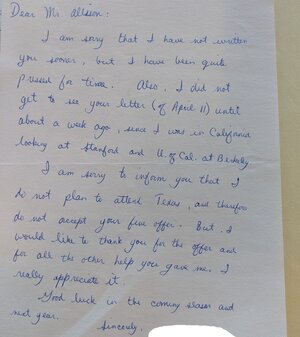 Dear Mr. Allison:
I am sorry that I have not written
you sooner, but I have been quite
pressed for time. Also, I did not
get to see your letter (of April 11) until
about a week ago, since I was in California
looking at Stanford and U. of Cal. at Berkely.
I am sorry to inform you that I
do not plan to attend Texas, and therefore
do not accept your fine offer. But I
would like to thank you for the offer and
for all the other help you gave me. I
really appreciate it.
Good luck in the coming season and
next year.
Sincerely,